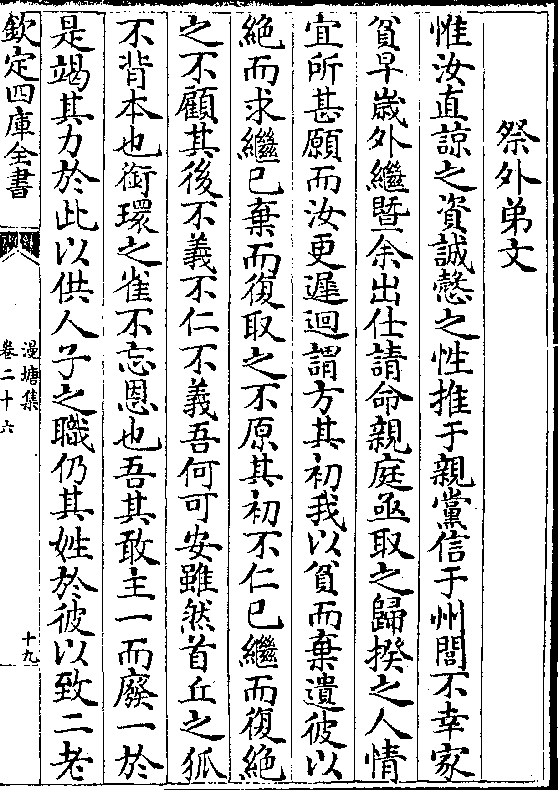 祭外弟文
惟汝直諒之資誠慤之性推于親黨信于州閭不幸家
貧早歳外繼暨余出仕請命親庭亟取之歸揆之人情
宜所甚願而汝更遲迴謂方其初我以貧而棄遺彼以
絶而求繼已棄而復取之不原其初不仁已繼而復絶
之不顧其後不義不仁不義吾何可安雖然首丘之狐
不背本也銜環之雀不忘恩也吾其敢主一而廢一於
是竭其力於此以供人子之職仍其姓於彼以致二老
欽定四庫全書
漫塘集
卷二十六
十九